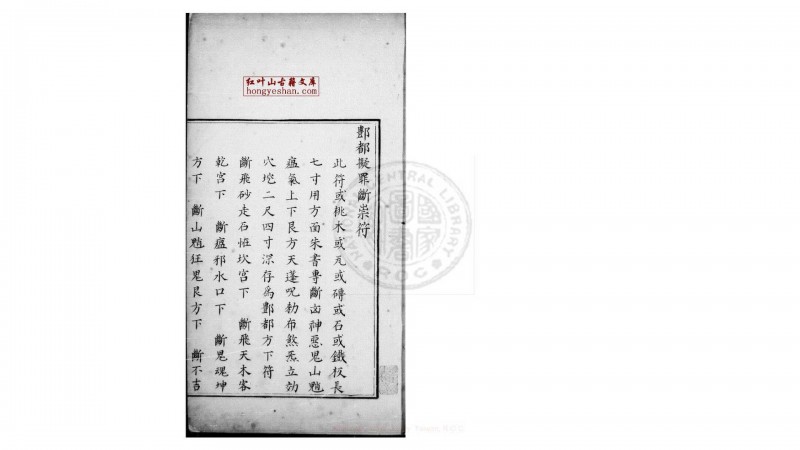 红叶山古籍文库
hongyeshan.com
酆都擬罪斷祟符
此符或桃木或瓦或磚或石或鐵板長
七寸用方面朱書專斷凶神惡鬼山魈
瘟氣上下艮方天蓬咒勅布煞炁立効
穴埪二尺四寸深存爲酆都方下符
斷飛砂走石恠坎宮下　斷飛天木客
乾宮下　斷瘟邪水口下　斷鬼魂坤
方下　斷山魈狂鬼艮方下　斷不吉
CENTRAL LIBRARY
R.O.C.
國家圖書館